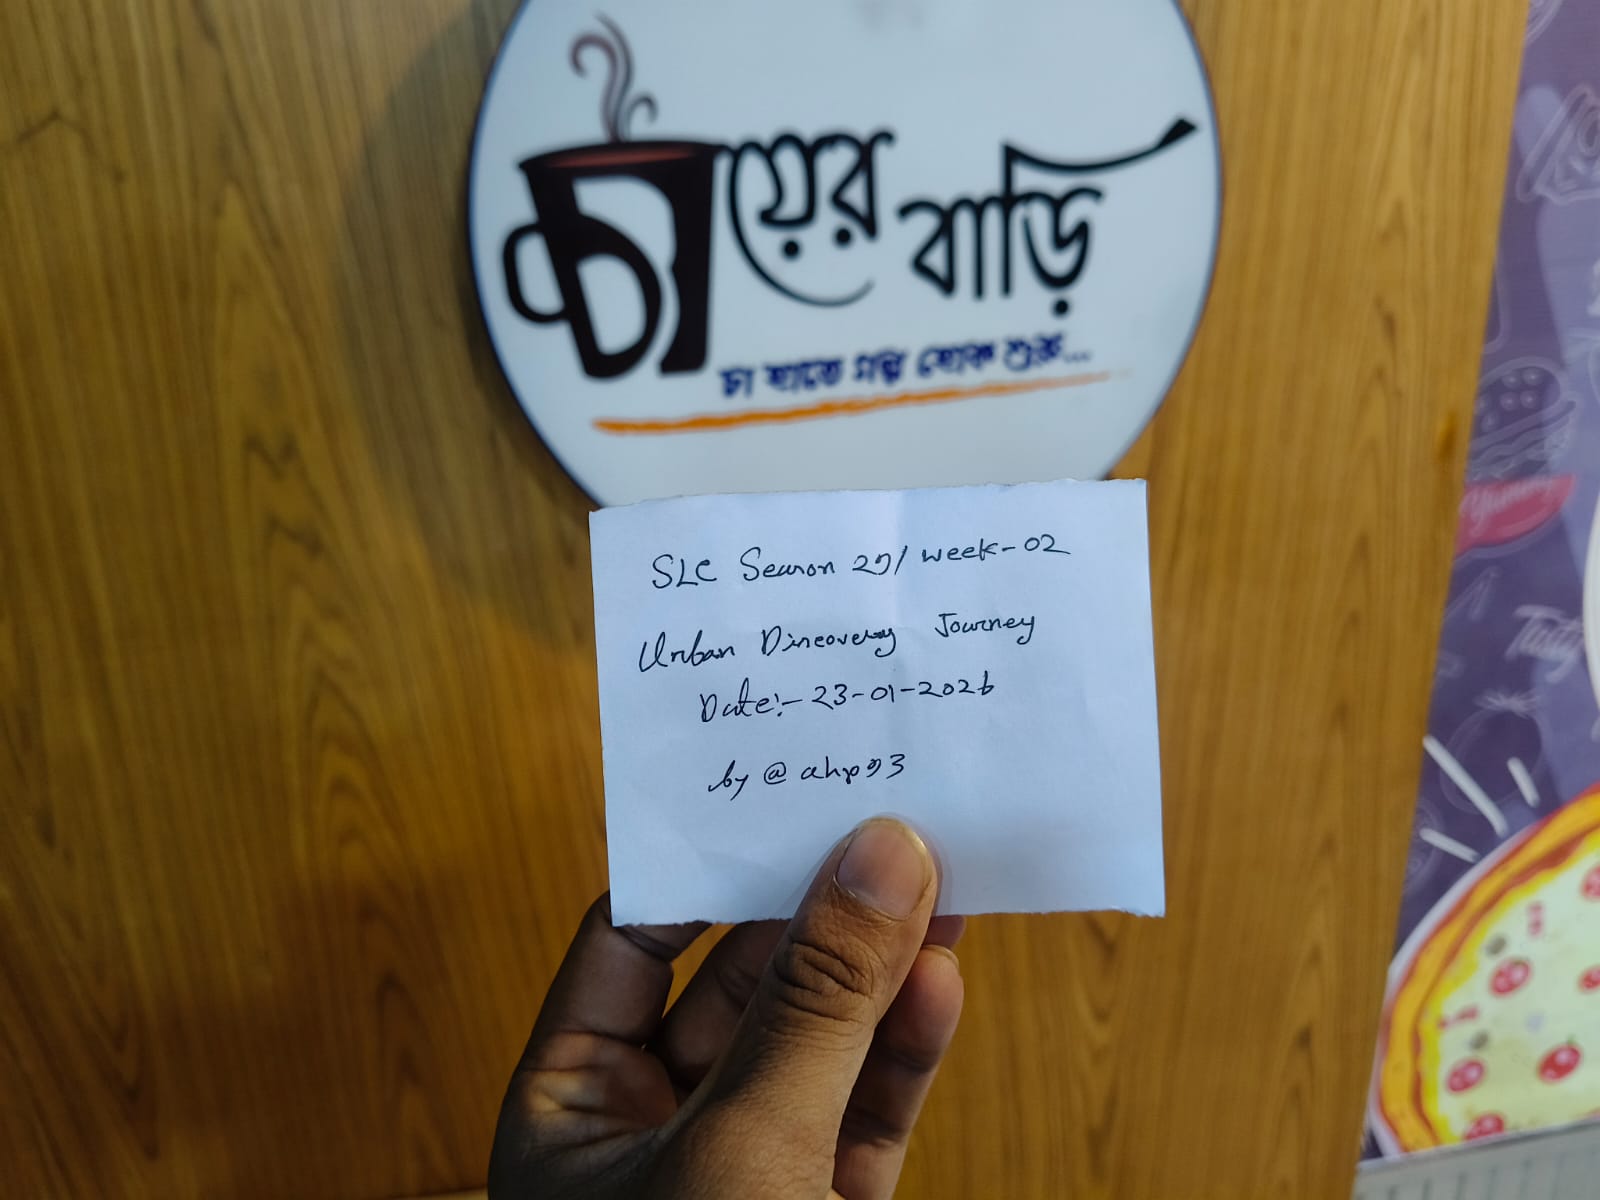 চায়ের বাড়ি
চা হাতে গল্প হোক শুরু...
SLC Season 29/ week-02
Urban Discovery Journey
Date:- 23-01-2026
by @ ahp93
Yummy
Tasty